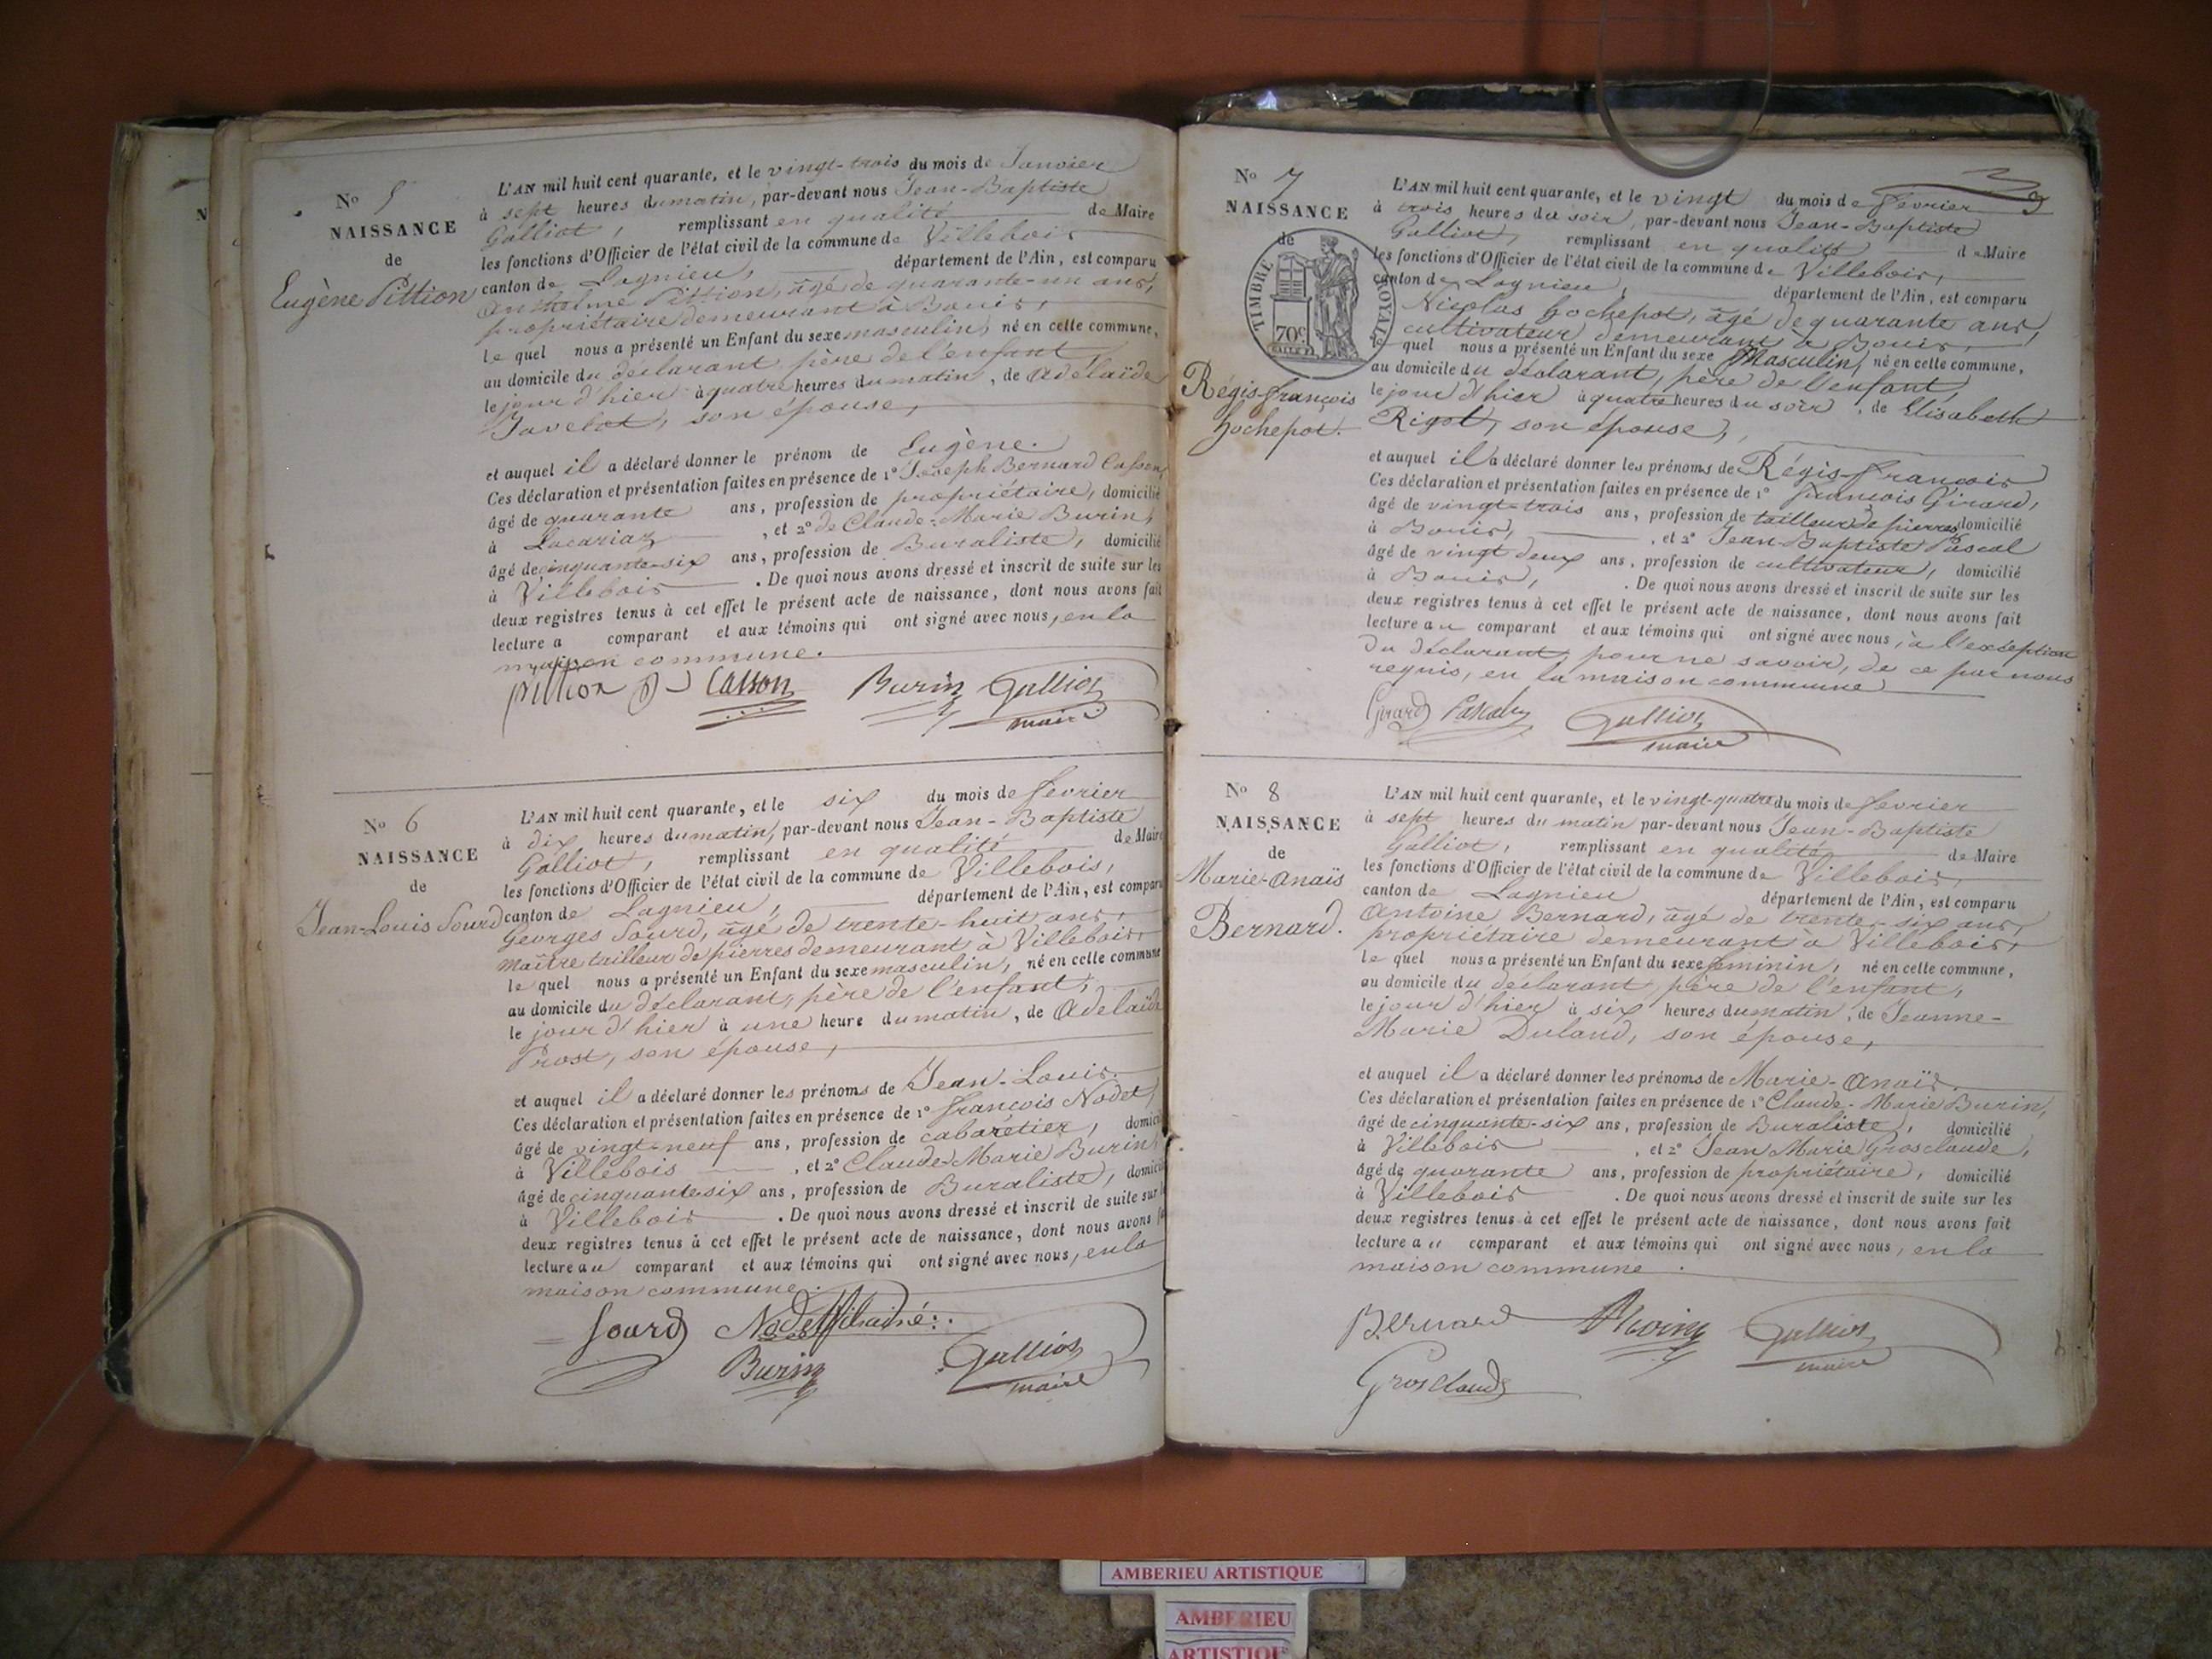 N° 5
NAISSANCE
de
Eugène Pittion
L'AN mil huit cent quarante, et le vingt-trois du mois de Janvier
à sept heures du matin, par-devant nous Jean-Baptiste
Galliot, remplissant en qualité de Maire
les fonctions d'Officier de l'état civil de la commune de Villebois
canton de Lagnieu, département de l'Ain, est comparu
Anthelme Pittion, âgé de quarante-un ans,
propriétaire demeurant à Bouis,
le quel nous a présenté un Enfant du sexe masculin, né en cette commune,
au domicile du déclarant, père de l'enfant,
le jour d'hier à quatre heures du matin, de Adélaïde
Javelot, son épouse,
et auquel il a déclaré donner le prénom de Eugène.
Ces déclaration et présentation faites en présence de 1° Joseph Bernard Casson,
âgé de quarante ans, profession de propriétaire, domicilié
à Lacariaz, et 2° de Claude-Marie Burin,
âgé de cinquante-six ans, profession de Buraliste, domicilié
à Villebois. De quoi nous avons dressé et inscrit de suite sur les
deux registres tenus à cet effet le présent acte de naissance, dont nous avons fait
lecture a comparant et aux témoins qui ont signé avec nous, en la
maison commune.
pittion Casson Burin Galliot
maire
N° 6
NAISSANCE
de
Jean-Louis Sourd
L'AN mil huit cent quarante, et le six du mois de février
à dix heures du matin, par-devant nous Jean-Baptiste
Galliot, remplissant en qualité de Maire
les fonctions d'Officier de l'état civil de la commune de Villebois,
canton de Lagnieu, département de l'Ain, est comparu
Georges Sourd, âgé de trente-huit ans,
Maître tailleur de pierres demeurant à Villebois,
le quel nous a présenté un Enfant du sexe masculin, né en cette commune
au domicile du déclarant, père de l'enfant,
le jour d'hier à une heure du matin, de Adelaïde
Prost, son épouse,
et auquel il a déclaré donner les prénoms de Jean-Louis.
Ces déclaration et présentation faites en présence de 1° françois Nodet,
âgé de vingt-neuf ans, profession de cabaretier, domicilié
à Villebois, et 2° Claude-Marie Burin,
âgé de cinquante-six ans, profession de Buraliste, domicilié
à Villebois. De quoi nous avons dressé et inscrit de suite sur les
deux registres tenus à cet effet le présent acte de naissance, dont nous avons fait
lecture au comparant et aux témoins qui ont signé avec nous, en la
maison commune.
Sourd
Burin Galliot
maire
N° 7
NAISSANCE
de
TIMBRE ROYAL
70c
Régis-françois
hochepot.
9
L'AN mil huit cent quarante, et le vingt du mois de février
à trois heures du soir, par-devant nous Jean-Baptiste
Galliot, remplissant en qualité de Maire
les fonctions d'Officier de l'état civil de la commune de Villebois,
canton de Lagnieu, département de l'Ain, est comparu
Nicolas hochepot, âgé de quarante ans,
cultivateur demeurant à Bouis,
le quel nous a présenté un Enfant du sexe Masculin, né en cette commune,
au domicile du déclarant, père de l'enfant,
le jour d'hier à quatre heures du soir, de Elisabeth
Rigot, son épouse,
et auquel il a déclaré donner les prénoms de Régis-françois
Ces déclaration et présentation faites en présence de 1° françois Girard,
âgé de vingt-trois ans, profession de tailleur de pierres, domicilié
à Bouis, et 2° Jean-Baptiste Pascal
âgé de vingt deux ans, profession de cultivateur, domicilié
à Bouis, . De quoi nous avons dressé et inscrit de suite sur les
deux registres tenus à cet effet le présent acte de naissance, dont nous avons fait
lecture au comparant et aux témoins qui ont signé avec nous, à l'exception
du déclarant, pour ne savoir, de ce par nous
requis, en la maison commune
Girard Pascal Galliot
maire
N° 8
NAISSANCE
de
Marie-Anaïs
Bernard.
L'AN mil huit cent quarante, et le vingt-quatre du mois de fevrier
à sept heures du matin par-devant nous Jean-Baptiste
Galliot, remplissant en qualité de Maire
les fonctions d'Officier de l'état civil de la commune de Villebois,
canton de Lagnieu département de l'Ain, est comparu
Antoine Bernard, âgé de trente-six ans,
propriétaire demeurant à Villebois,
le quel nous a présenté un Enfant du sexe féminin, né en cette commune,
au domicile du déclarant, père de l'enfant,
le jour d'hier à six heures du matin, de Jeanne-
Marie Duland, son épouse,
et auquel il a déclaré donner les prénoms de Marie-Anaïs.
Ces déclaration et présentation faites en présence de 1° Claude-Marie Burin,
âgé de cinquante-six ans, profession de Buraliste, domicilié
à Villebois, et 2° Jean Marie Grosclaude,
âgé de quarante ans, profession de propriétaire, domicilié
à Villebois. De quoi nous avons dressé et inscrit de suite sur les
deux registres tenus à cet effet le présent acte de naissance, dont nous avons fait
lecture au comparant et aux témoins qui ont signé avec nous, en la
maison commune.
Bernard Burin Galliot
maire
Grosclaude
AMBERIEU ARTISTIQUE
AMBERIEU
ARTISTIQUE